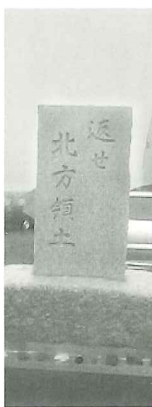 返せ
北方領土